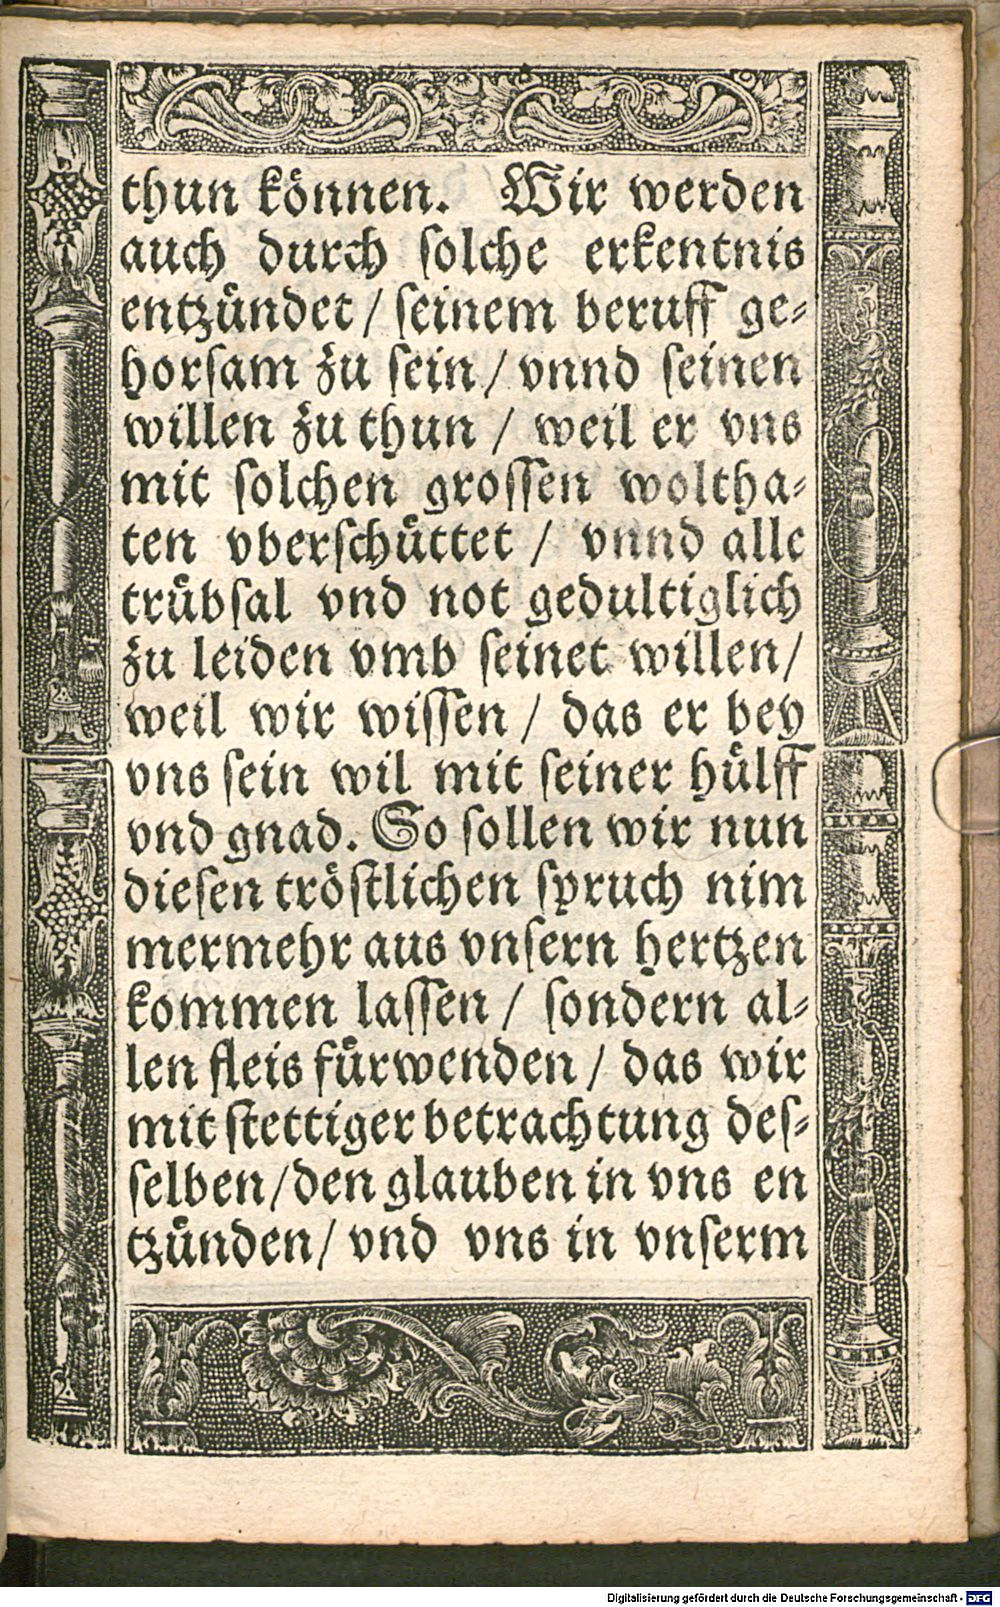 thun können. Wir werden
auch durch solche erkentnis
entzündet / seinem beruff ge-
horsam zu sein / vnnd seinen
willen zu thun / weil er vns
mit solchen grossen woltha-
ten vberschüttet / vnnd alle
trübsal vnd not gedultiglich
zu leiden vmb seinet willen /
weil wir wissen / das er bey
vns sein wil mit seiner hülff
vnd gnad. So sollen wir nun
diesen tröstlichen spruch nim
mermehr aus vnsern hertzen
kommen lassen / sondern al-
len fleis fürwenden / das wir
mit stettiger betrachtung des-
selben / den glauben in vns en
tzünden / vnd vns in vnserm
Digitalisierung gefördert durch die Deutsche Forschungsgemeinschaft - DFG